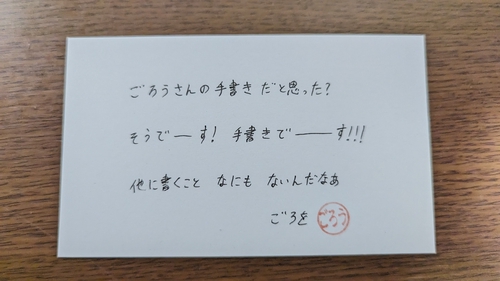 ごろうさんの手書きだと思った?
そうでーす! 手書きでーーす!!!
他に書くこと なにも ないんだなあ
ごろを ごろう